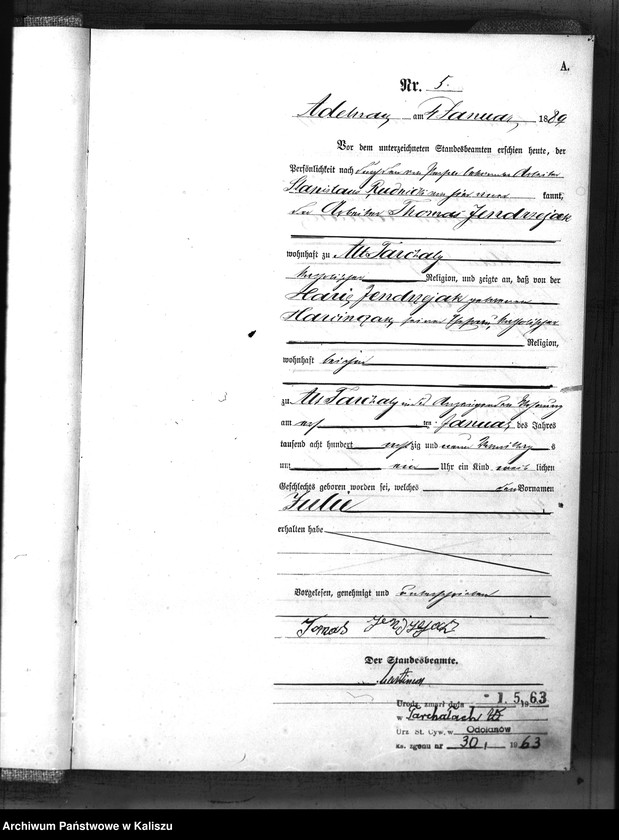 A.
Nr. 5.
Adelnau, am 4 Januar 1889
Vor dem unterzeichneten Standesbeamten erschien heute, der
Persönlichkeit nach
Stanislaus Rudnicki von hier kannt,
der Arbeiter Thomas Jendrzejak
wohnhaft zu Alt Tarchaly
katholischer Religion, und zeigte an, daß von der
Jendrzejak geborenen
seiner Ehefrau, katholischer
Religion,
wohnhaft bei ihm
zu Alt Tarchaly in des Anzeigenden Wohnung
am ersten Januar des Jahres
tausend acht hundert achtzig und neun s
um ein Uhr ein Kind weiblichen
Geschlechts geboren worden sei, welches den Vornamen
Julie
erhalten habe
Vorgelesen, genehmigt und unterschrieben
Tomas Jendrzejak
Der Standesbeamte.
Urodz. zmarł dnia 1.5.1963
w Tarchałach W.
Urz. St. Cyw. w Odolanów
Ks. zgonu nr 30, 1963
Archiwum Państwowe w Kaliszu